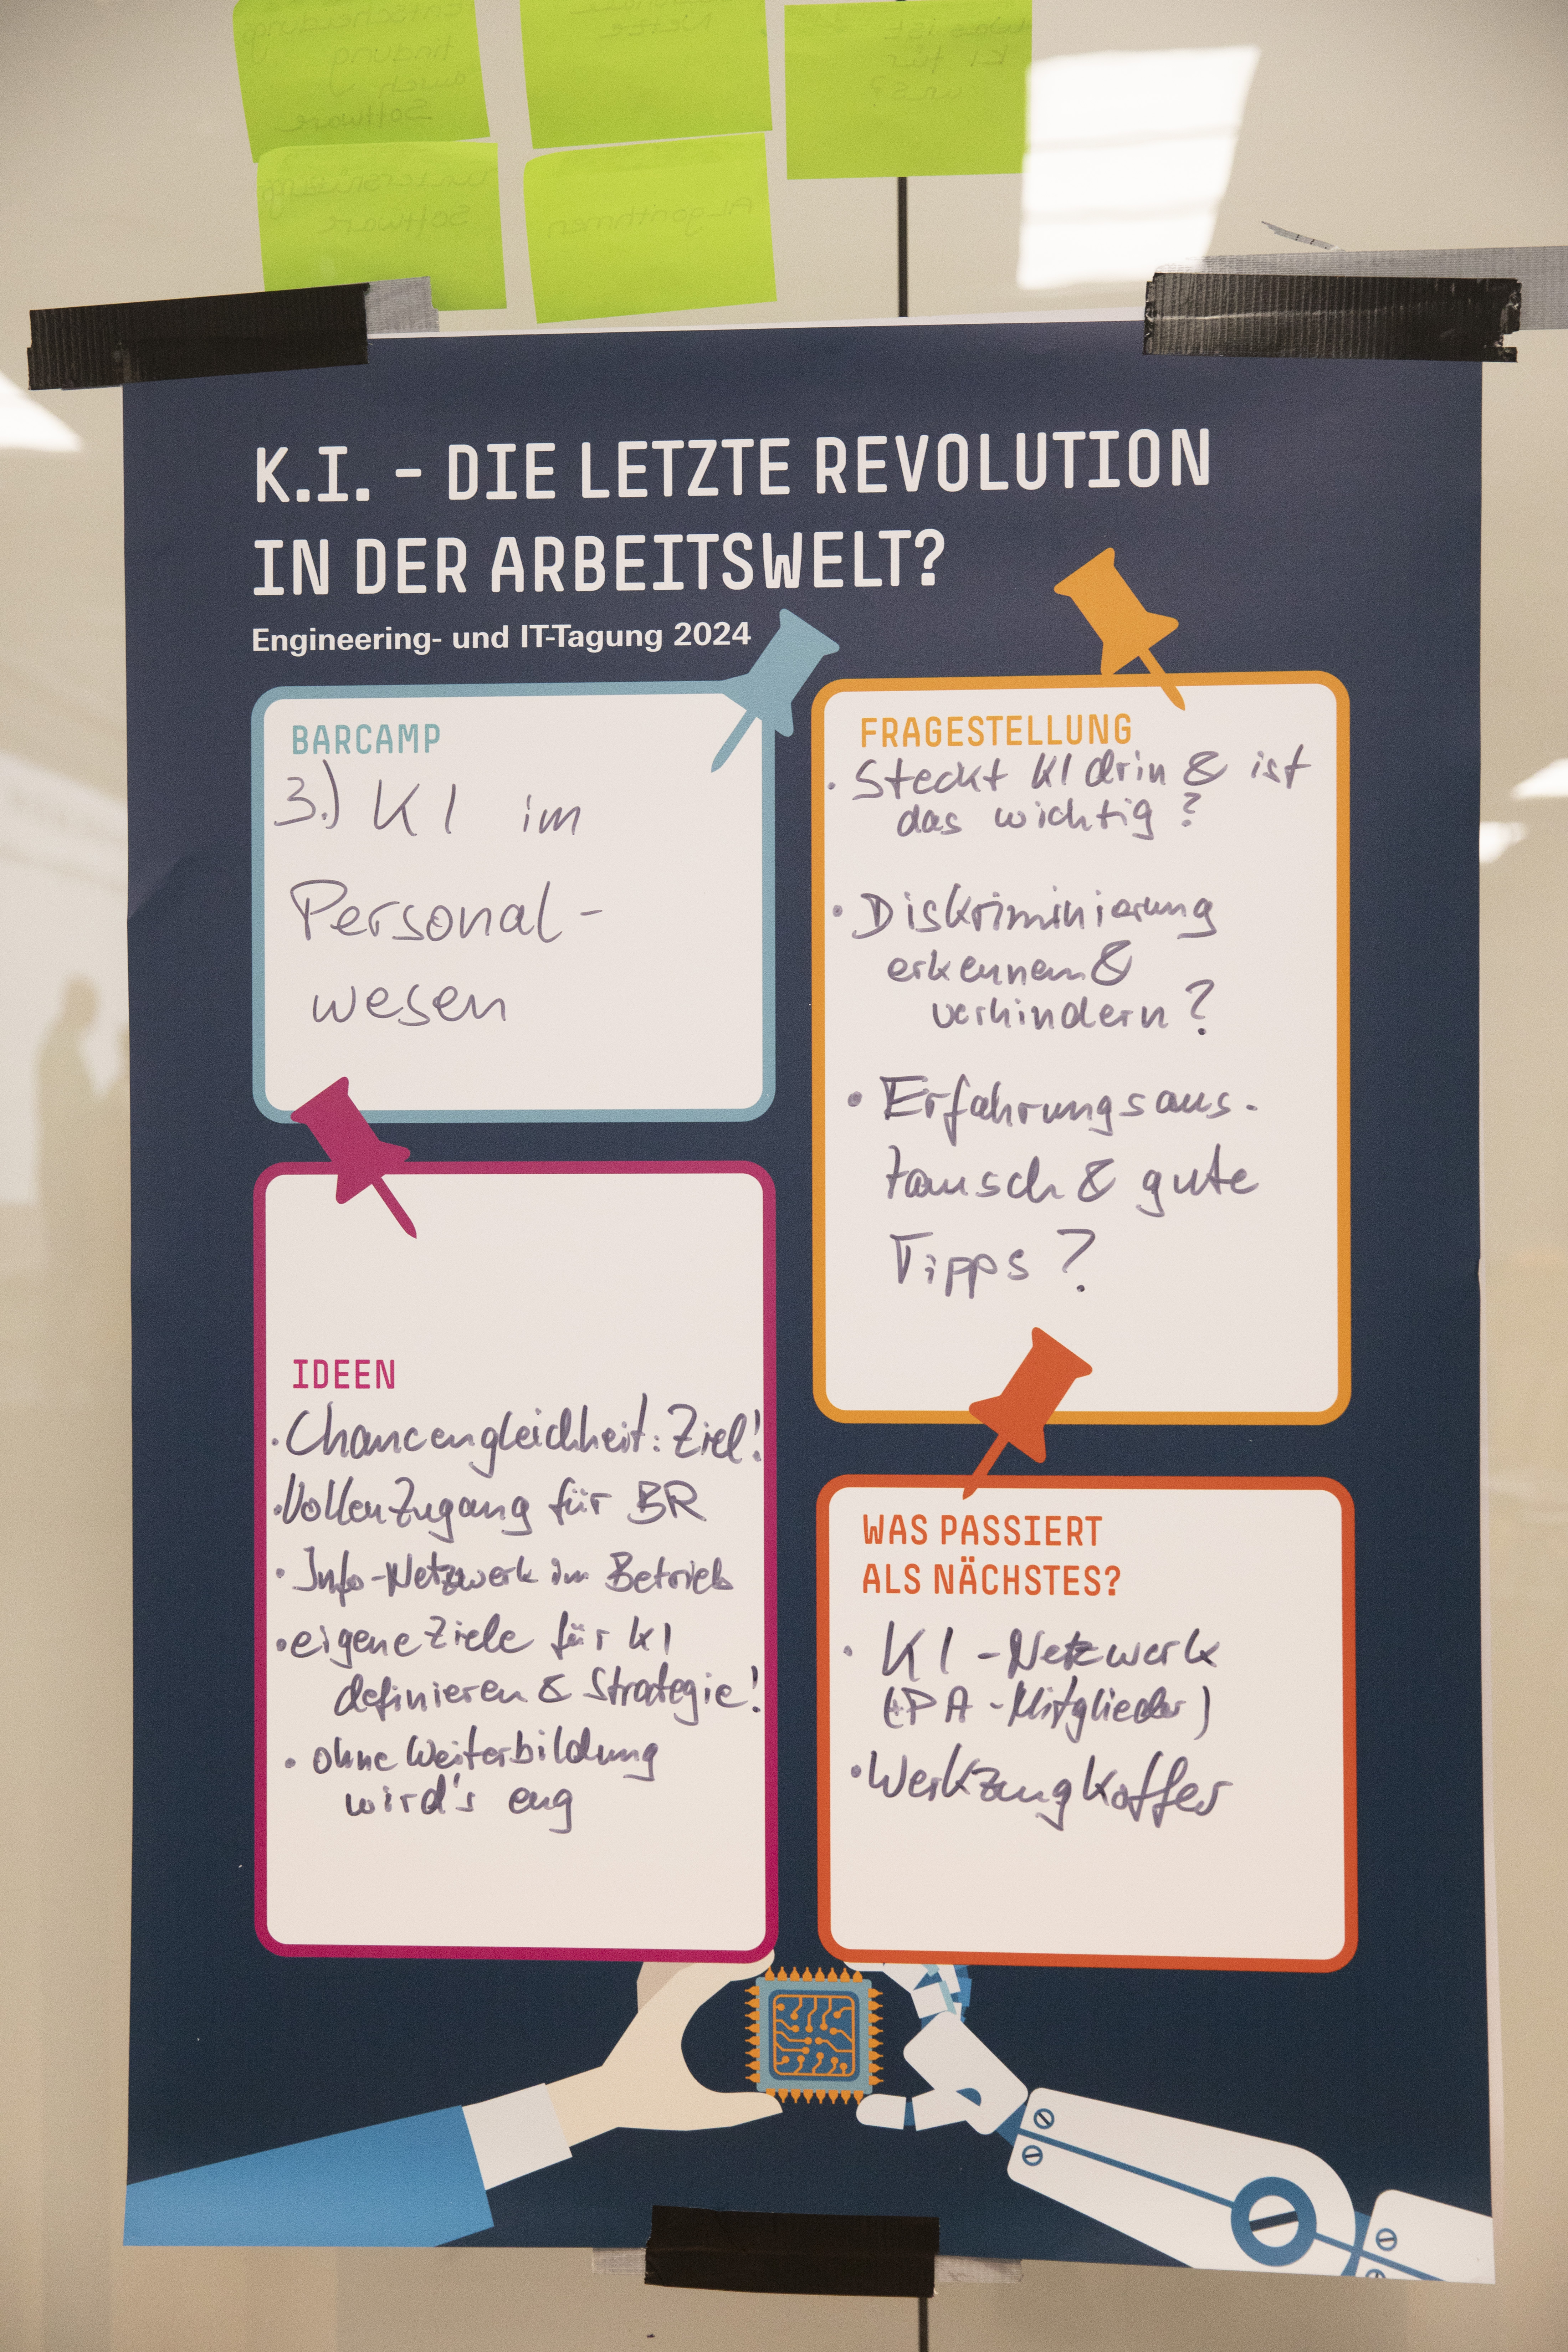 Entscheidungs
findung
auch
Software
Netze
Was ist
KI für
uns?
Software
Algorithmen
K.I. - DIE LETZTE REVOLUTION
IN DER ARBEITSWELT?
Engineering- und IT-Tagung 2024
BARCAMP
3.) KI im
Personal-
wesen
FRAGESTELLUNG
· Steckt KI drin & ist
das wichtig?
· Diskriminierung
erkennen &
verhindern?
· Erfahrungsaus-
tausch & gute
Tipps?
IDEEN
· Chancengleichheit: Ziel!
· Vollen Zugang für BR
· Info-Netzwerk im Betrieb
· eigene Ziele für KI
definieren & Strategie!
· ohne Weiterbildung
wird's eng
WAS PASSIERT
ALS NÄCHSTES?
· KI-Netzwerk
(+PA-Mitglieder)
· Werkzeugkoffer